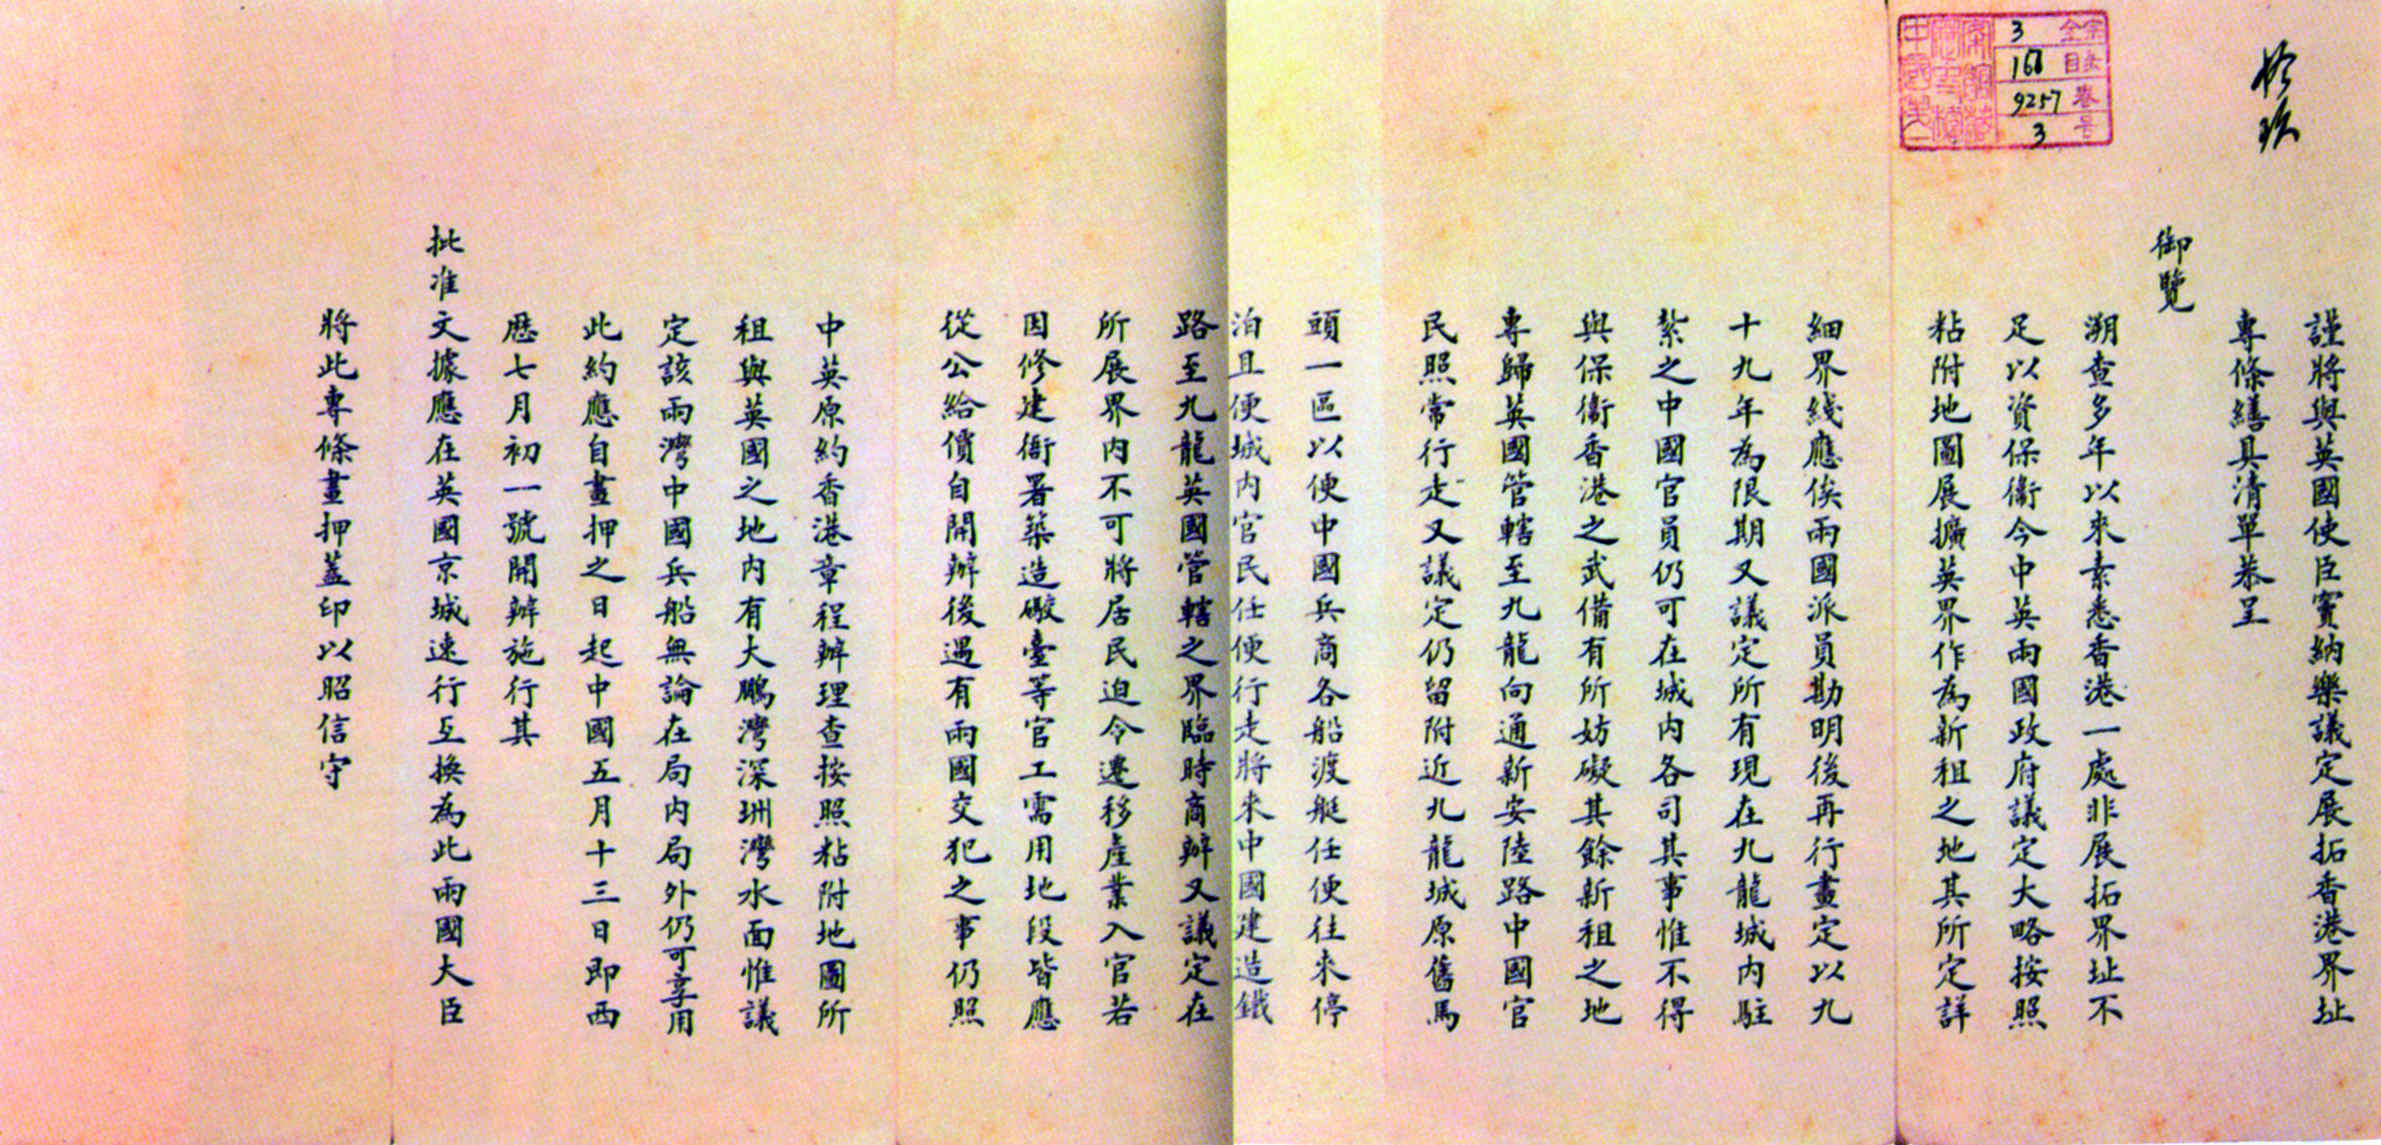 拾玖
全宗 3
目录 168
卷 9257
号 3
謹將與英國使臣竇納樂議定展拓香港界址
專條繕具清單恭呈
御覽
溯查多年以來素悉香港一處非展拓界址不
足以資保衛今中英兩國政府議定大略按照
粘附地圖展擴英界作為新租之地其所定詳
細界綫應俟兩國派員勘明後再行畫定以九
十九年為限期又議定所有現在九龍城內駐
紮之中國官員仍可在城內各司其事惟不得
與保衛香港之武備有所妨礙其餘新租之地
專歸英國管轄至九龍向通新安陸路中國官
民照常行走又議定仍留附近九龍城原舊馬
頭一區以便中國兵商各船渡艇任便往來停
泊且便城內官民任便行走將來中國建造鐵
路至九龍英國管轄之界臨時商辦又議定在
所展界內不可將居民迫令遷移產業入官若
因修建衙署築造礮臺等官工需用地段皆應
從公給價自開辦後遇有兩國交犯之事仍照
中英原約香港章程辦理查按照粘附地圖所
租與英國之地內有大鵬灣深圳灣水面惟議
定該兩灣中國兵船無論在局內局外仍可享用
此約應自畫押之日起中國五月十三日即西
歷七月初一號開辦施行其
批准文據應在英國京城速行互換為此兩國大臣
將此專條畫押蓋印以昭信守